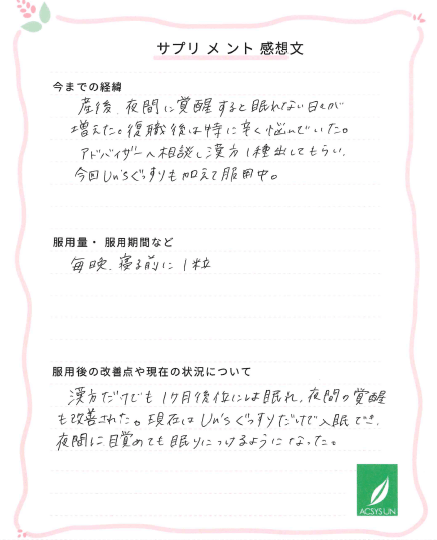 サプリメント感想文
今までの経緯
産後、夜間に覚醒すると眠れない日々が
増えた。復職後は特に辛く悩んでいた。
アドバイザーへ相談し漢方1種出してもらい、
今回Un'sぐっすりも加えて服用中。
服用量・服用期間など
毎晩、寝る前に1粒
服用後の改善点や現在の状況について
漢方だけでも1ヶ月後位には眠れ、夜間の覚醒
も改善された。現在はUn'sぐっすりだけで入眠でき、
夜間に目覚めても眠りにつけるようになった。
ACSYSUN